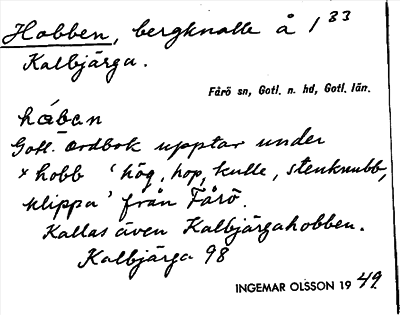 Hobben, bergknalle å 1 33
Kalbjärga.
Fårö sn, Gotl. n. hd, Gotl. län.
håban
Gotl. Ordbok upptar under
× hobb 'hög, hop, kulle, stenknubb,
klippa' från Fårö.
Kallas även Kalbjärgahobben.
Kalbjärga 98
INGEMAR OLSSON 1949